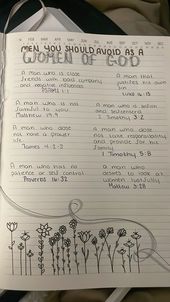 MEN YOU SHOULD AVOID AS A
WOMEN OF GOD
A man who is close
friends with bad company
and negative influences
1:1
A man that
justifies his own
sin
Luke 16:15
A man who is not
faithful to you
Matthew 19:9
A man who is selfish
and selfcentered
2 Timothy 3:2
A man who dose
not have a prayer
life
James 4:2-3
A man who dose
not take responsibility
and provide for his
family
1 Timothy 5:8
A man who has no
patience or self control
Proverbs 16:32
A man who
desires to look at
women lustfully
Mathew 5:28